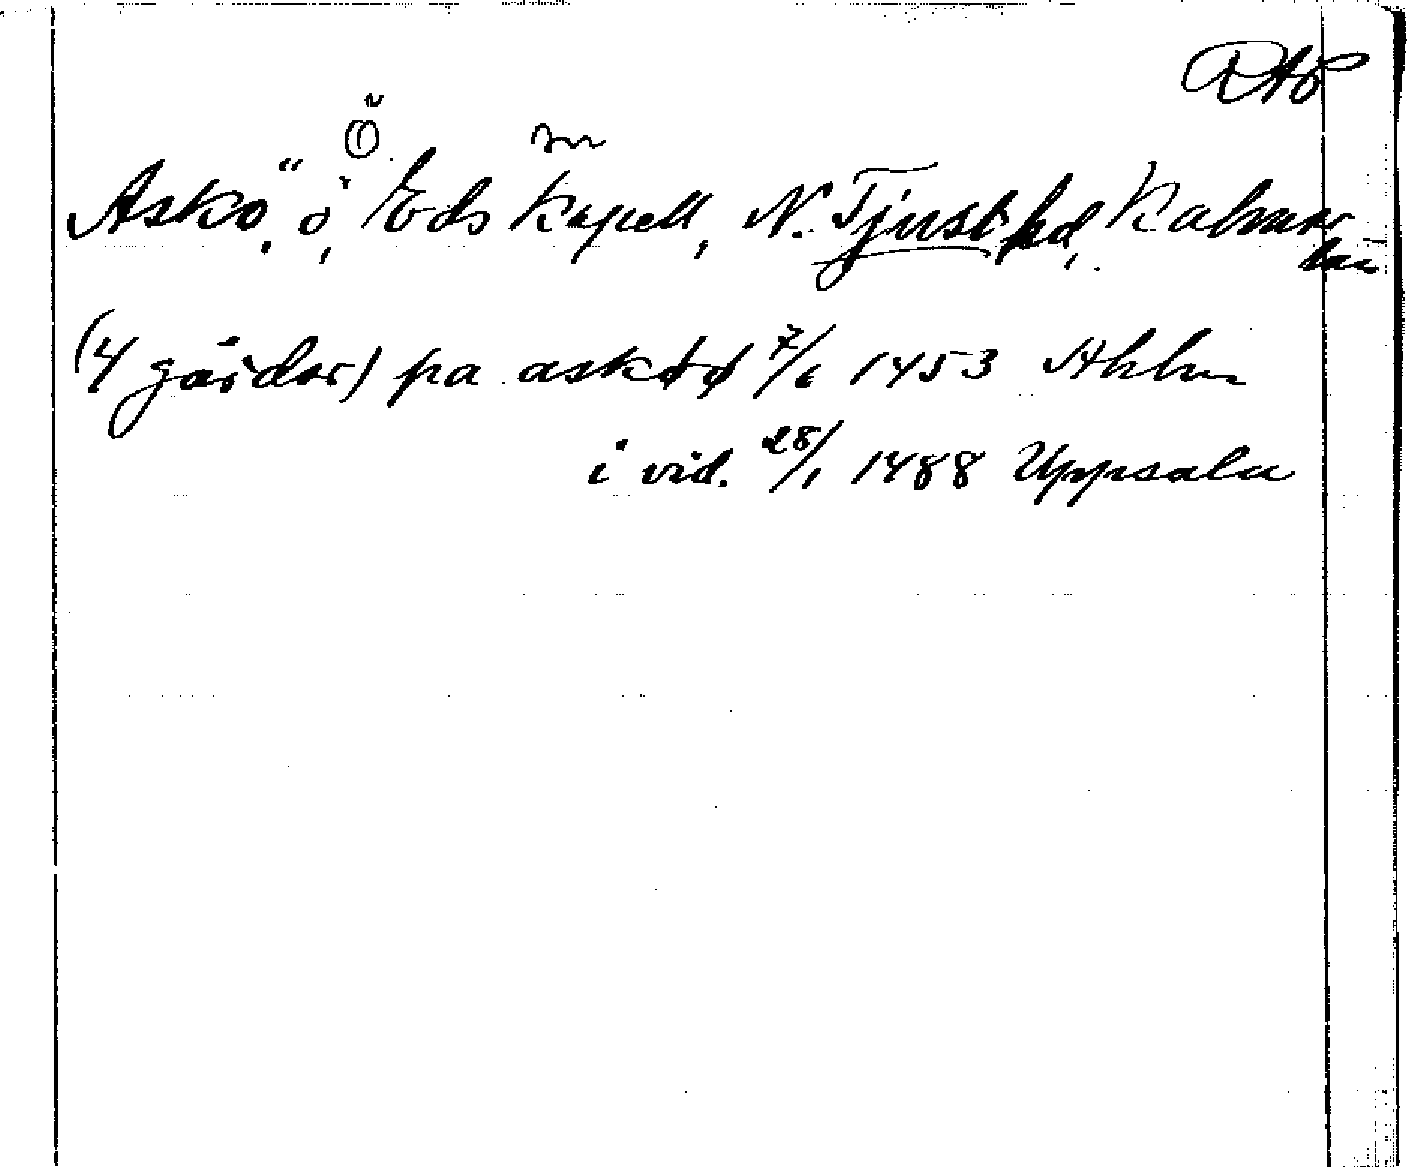 RAP
Ö sn
Askö, ö, Eds kapell, N. Tjust hd, Kalmar
län
(4 gårdar) pa askøø 7/6 1453
i vid. 28/1 1488 Uppsala